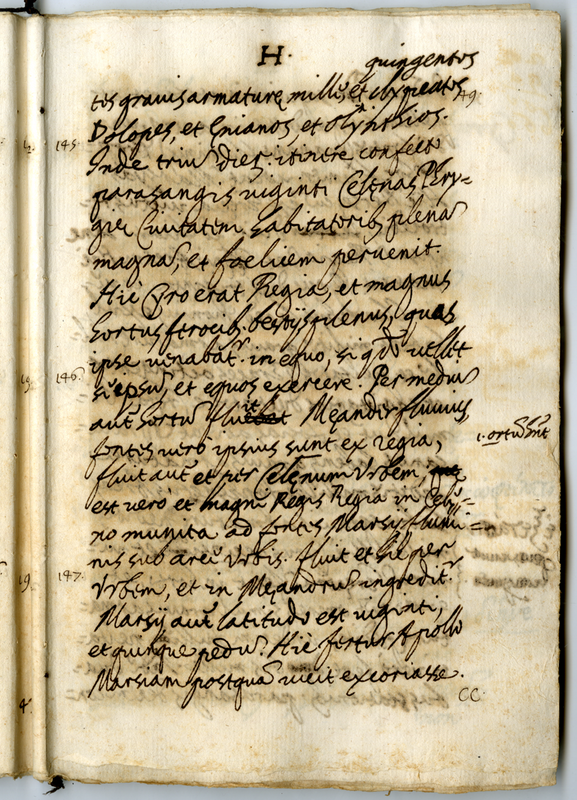 H.
quingentos
tes gravis armaturę mille, et clypeatos
49.
145.
Dolopes, et Enianos, et olynthios.
Inde triũ dieʒ itinere confect
parasangis viginti Celęnas Phry=
gię Civitatem habitatorib. plenã
magnã, et foelicem pervenit.
Hic Cyro erat Regia, et magnus
hortus ferocib. bestijs plenus, quas
ipse venabat. in equo, si qdo vellet
146.
seipsũ, et equos exercere. Per mediũ
aut hortũ fluit Męander fluvius,
fontes vero ipsius sunt ex regia,
1. ortũ hnt
fluit aut et per Celęnum Vrbem,
est vero et magni Regis Regia in Celę=
no munita ad fontes Marsyę flumi=
nis sub arce Vrbis. fluit et hic per
147.
Vrbem, et in Męandrũ ingredit.
Marsij aut latitudo est viginti,
et quinque pedũ. Hic fertur Apollo
Marsiam postquã vicit excoriasse.
CC.